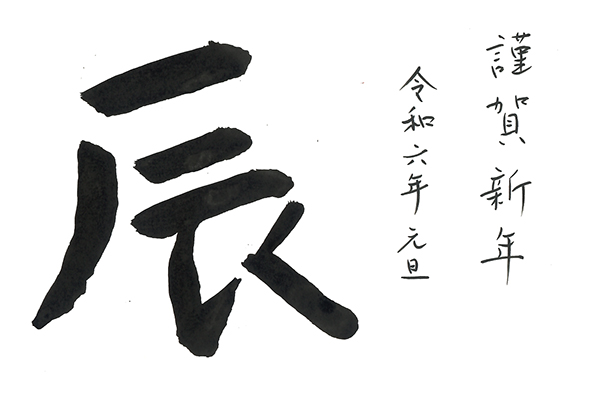 謹賀新年
令和六年元旦
辰